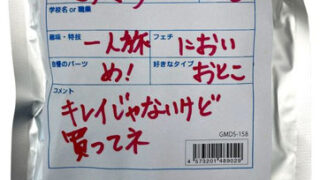 学校名 or 職業
趣味・特技 一人旅 フェチ におい
自慢のパーツ め! 好きなタイプ おとこ
コメント
キレイじゃないけど
買ってネ
GMDS-158
4573201489029